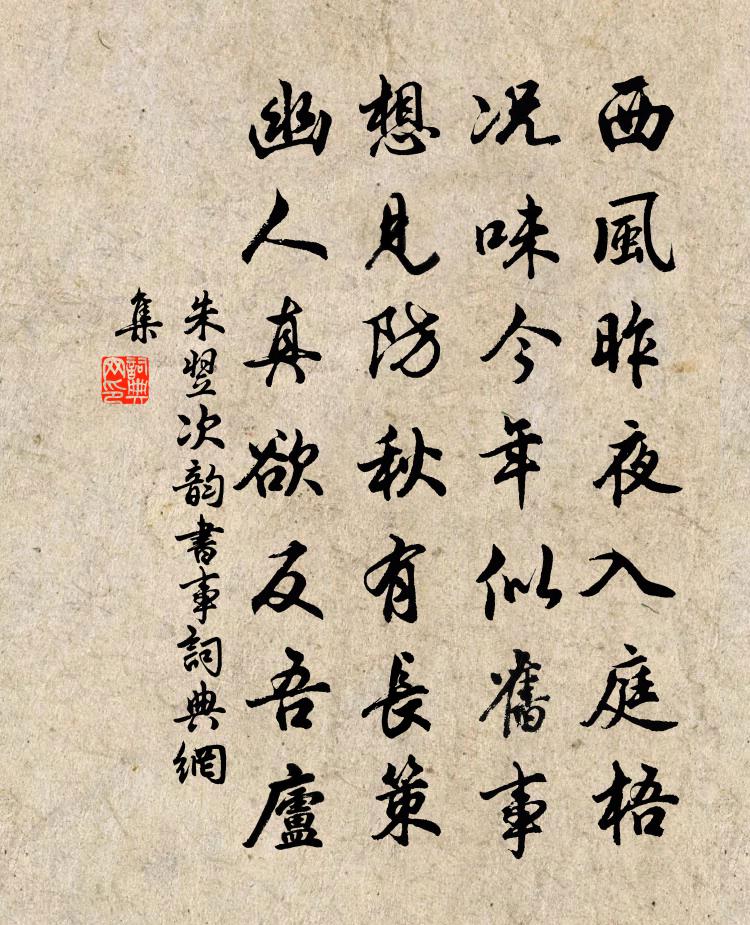 西風昨夜入庭梧
況味今年似舊事
想見防秋有長策
幽人真欲反吾廬
朱翌次韵書事詞典網
集
詞典
网印